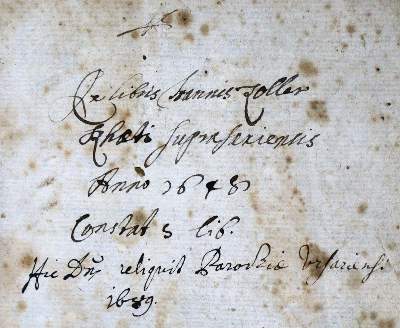 Ex libris Joannis Zoller
Rhæti supraseriensis
Anno 1648
Constat 5 lib.
Hic Dñs reliquit Parochiæ Ursariensi
1689.